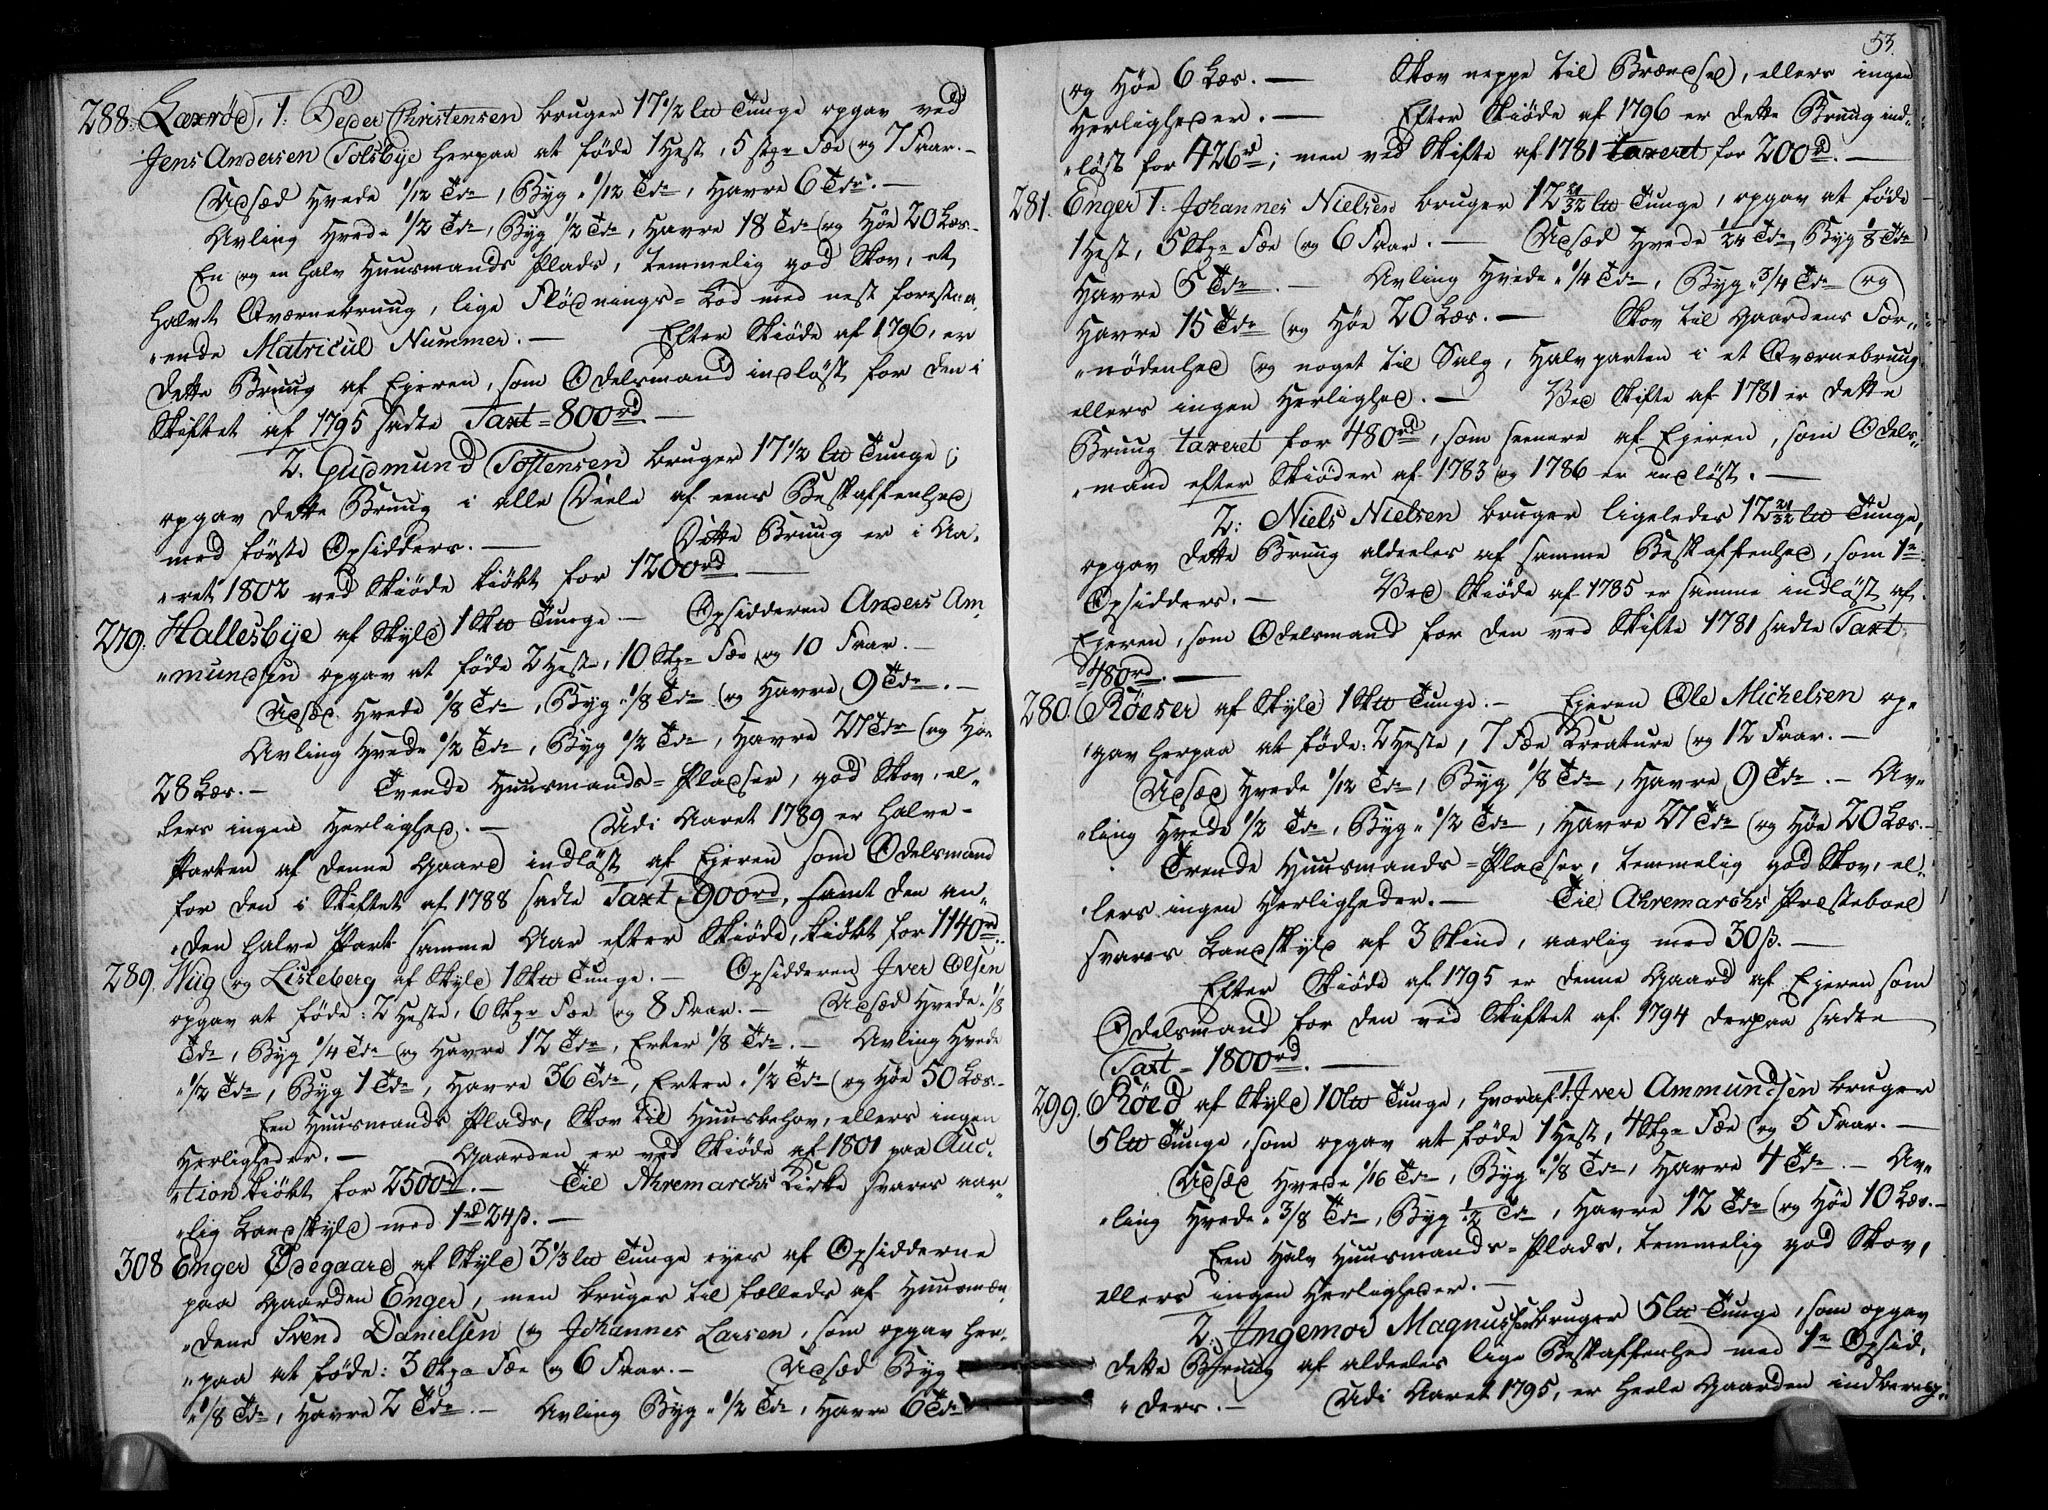 288. Laxrød, 1. Peder Christensen bruger 17 1/2 lb Tunge opgav ved
Jens Andersen Tolsbye herpaa at føde 1 Hest, 5 stkr Fæe og 7 Faar. —
Udsæd Hvede 1/12 Tde, Byg 1/12 Tde, Havre 6 Tdr. —
Avling Hvede 1/2 Tde, Byg 1/2 Tde, Havre 18 Tdr og Høe 20 Læs.
En og en halv Huusmands Plads, temmelig god Skov, et
halvt Qværnebruug, lige Flødnings-Lod med nest forestaa-
"ende Matricul Nummer. — Efter Skiøde af 1796, er
dette Bruug af Ejeren, som Odelsmand indløst for den i
Skiftet af 1795 sadte Taxt = 800 rd. —
2. Gudmund Tostensen bruger 17 1/2 lb Tunge;
opgav dette Bruug i alle Deele af eens Beskaffenhed
med første Opsidders. — Dette Bruug er i Aa-
"ret 1802 ved Skiøde kiøbt for 1200 rd —
279. Hallesbye af Skyld 1 Skb Tunge — Opsidderen Anders Am-
"mundsen opgav at føde 2 Heste, 10 Stkr Fæe og 10 Faar. —
Udsæd Hvede 1/8 Tde, Byg 1/8 Tde og Havre 9 Tdr. —
Avling Hvede 1/2 Tde, Byg 1/2 Tde, Havre 27 Tdr og Høe
28 Læs. — Tvende Huusmands-Pladser, god Skov, el-
lers ingen Herlighed. — Udi Aaret 1789 er halve-
Parten af denne Gaard indløst af Ejeren som Odelsmand
for den i Skiftet af 1788 sadte Taxt - 900 rd, samt den an-
"den halve Part samme Aar efter Skiøde, kiøbt for 1140 rd.
289. Wiig og Listeberg af Skyld 1 Skb Tunge. — Opsidderen Iver Olsen
opgav at føde: 2 Heste, 6 Stkr Fæe og 8 Faar. — Udsæd Hvede 1/8
Tde, Byg 1/4 Tde og Havre 12 Tdr, Erter 1/8 Tde. — Avling Hvede
"1/2 Tde, Byg 1 Tde, Havre 36 Tdr, Erter 1/2 Tde og Høe 50 Læs.
Een Huusmands Plads, Skov til Huusbehov, ellers ingen
Herligheder. — Gaarden er ved Skiøde af 1801 paa Auc-
"tion kiøbt for 2500 rd. — Til Ahremarchs Kirke svares aar-
"lig Landskyld med 1 rd 24 ß. —
308 Enger Ødegaard af Skyld 3 1/3 lb Tunge eyes af Opsidderne
paa Gaarden Enger, men bruges til fælleds af Huusmæn-
"dene Svend Danielsen og Johannes Larsen, som opgav her-
"paa at føde: 3 Stkr Fæe og 6 Faar. — Udsæd Byg
"1/8 Tde, Havre 2 Tdr. — Avling Byg 1/2 Tde, Havre 6 Tdr
53.
og Høe 6 Læs. — Skov neppe til Brændsel, ellers ingen
Herligheder. — Efter Skiøde af 1796 er dette Bruug ind-
"løst for 426 rd; men ved Skifte af 1781 taxeret for 200 d. —
281. Enger 1. Johannes Nielsen bruger 12 21/32 lb Tunge, opgav at føde
1 Hest, 5 Stkr Fæe og 6 Faar. — Udsæd Hvede 1/24 Tde, Byg 1/8 Tde
Havre 5 Tdr. — Avling Hvede 1/4 Tde, Byg 3/4 Tde og
Havre 15 Tdr og Høe 20 Læs. — Skov til Gaardens For-
"nødenhed og noget til Salg, Halvparten i et Qværnebruug
ellers ingen Herlighed. — Ved Skifte af 1781 er dette
Bruug taxeret for 480 rd, som senere af Ejeren, som Odels-
"mand efter Skiøder af 1783 og 1786 er indløst. —
2. Niels Nielsen bruger ligeledes 12 21/32 lb Tunge,
opgav dette Bruug aldeeles af samme Beskaffenhed, som 1te
Opsidders. — Ved Skiøde af 1785 er samme indløst af
Ejeren, som Odelsmand for den ved Skifte 1781 sadte Taxt
= 480 rd. —
280 Røeser af Skyld 1 Skb Tunge. — Ejeren Ole Michelsen op-
"gav herpaa at føde: 2 Heste, 7 Fæe Kreature og 12 Faar. —
Udsæd Hvede 1/12 Tde, Byg 1/8 Tde, Havre 9 Tdr. — Av-
"ling Hvede 1/2 Tde, Byg 1/2 Tde, Havre 27 Tdr og Høe 20 Læs. —
Trende Huusmands-Pladser, temmelig god Skov, el-
"lers ingen Herligheder. — Til Ahremarchs Præsteboel
svares Landskyld af 3 Skind, aarlig med 30 ß. —
Efter Skiøde af 1795 er denne Gaard af Ejeren som
Odelsmand for den ved Skiftet af 1794 derpaa sadte
Taxt - 1800 rd. —
299. Røed af Skyld 10 lb Tunge, hvoraf 1. Iver Ammundsen bruger
5 lb Tunge, som opgav at føde 1 Hest, 4 Stkr Fæe og 5 Faar. —
Udsæd Hvede 1/16 Tde, Byg 1/8 Tde, Havre 4 Tdr. — Av-
"ling Hvede 3/8 Tde, Byg 1/2 Tde, Havre 12 Tdr og Høe 10 Læs. —
Een halv Huusmands-Plads, temmelig god Skov,
ellers ingen Herligheder. —
2. Ingemor Magnussen bruger 5 lb Tunge, som opgav
dette Bruug af aldeeles lige Beskaffenhed med 1te Opsid-
"ders. — Udi Aaret 1795, er heele Gaarden indbereg-